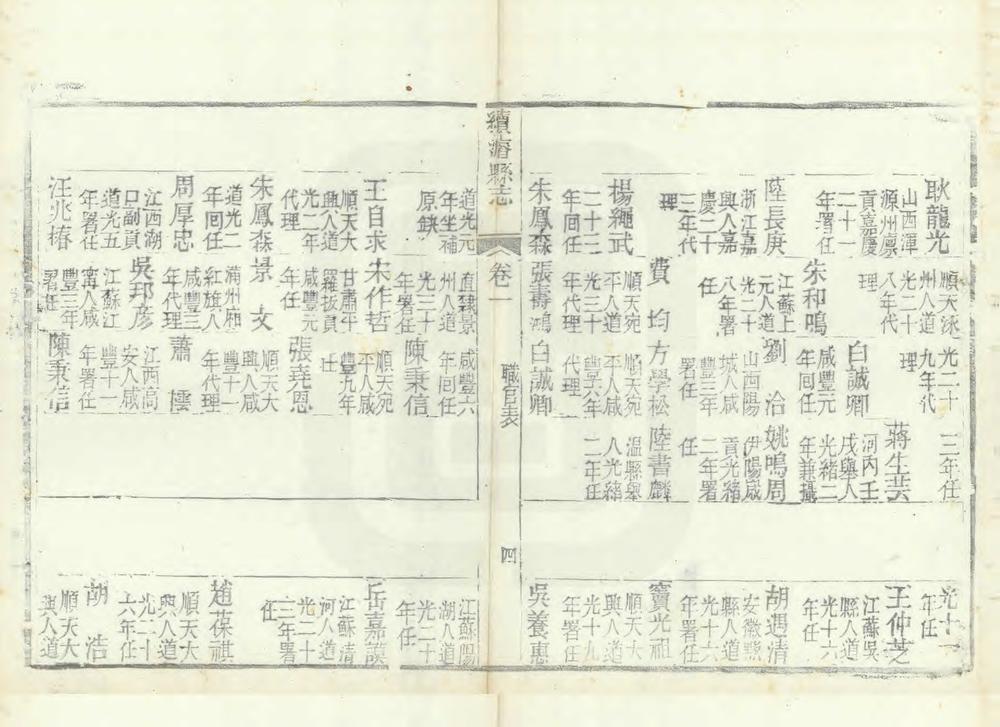 耿龍光
山西渾
源州廩
貢嘉慶
二十一
年署任
陸長庚
浙江嘉
興人嘉
慶二十
三年代
理
楊繩武
二十三
年回任
朱鳳森
順天涿
州人道
光二十
八年代
理
朱和鳴
江蘇上
元人道
光二十
八年署
任
費均
順天宛
平人道
光三十
年代理
張壽鴻
光二十
九年代
理
白誠卿
咸豐元
年回任
劉洽
山西陽
城人咸
豐三年
署任
方學松
順天宛
平人咸
豐六年
代理
白誠卿
三年任
蔣生芸
河内壬
戌舉人
光緒二
年兼攝
姚鳴周
伊陽歲
貢光緒
二年署
任
陸書麟
温縣舉
人光緒
二年任
光十一
年任
王仲芝
江蘇吳
縣人道
光十六
年任
胡遇清
安徽黟
縣人道
光十六
年署任
竇光祖
順天大
興人道
光十九
年署任
吳養惠
續濬縣志
卷一
職官表
四
道光元
年坐補
原缺
王自求
順天大
興人道
光二年
代理
朱鳳森
道光二
年回任
周厚忠
江西湖
口副貢
道光五
年署任
汪兆椿
直隸景
州人道
光三十
年署任
宋作哲
甘肅平
羅拔貢
咸豐元
年任
景文
滿州廂
紅旗人
咸豐三
年代理
吳邦彥
江蘇江
甯人咸
豐三年
署任
咸豐六
年回任
陳秉信
順天宛
平人咸
豐九年
任
張堯恩
順天大
興人咸
豐十一
年代理
蕭樓
江西高
安人咸
豐十一
年署任
陳秉信
江蘇陽
湖人道
光二十
年任
岳嘉謨
江蘇清
河人道
光二十
三年署
任
趙葆祺
順天大
興人道
光二十
六年任
胡浩
順天大
興人道